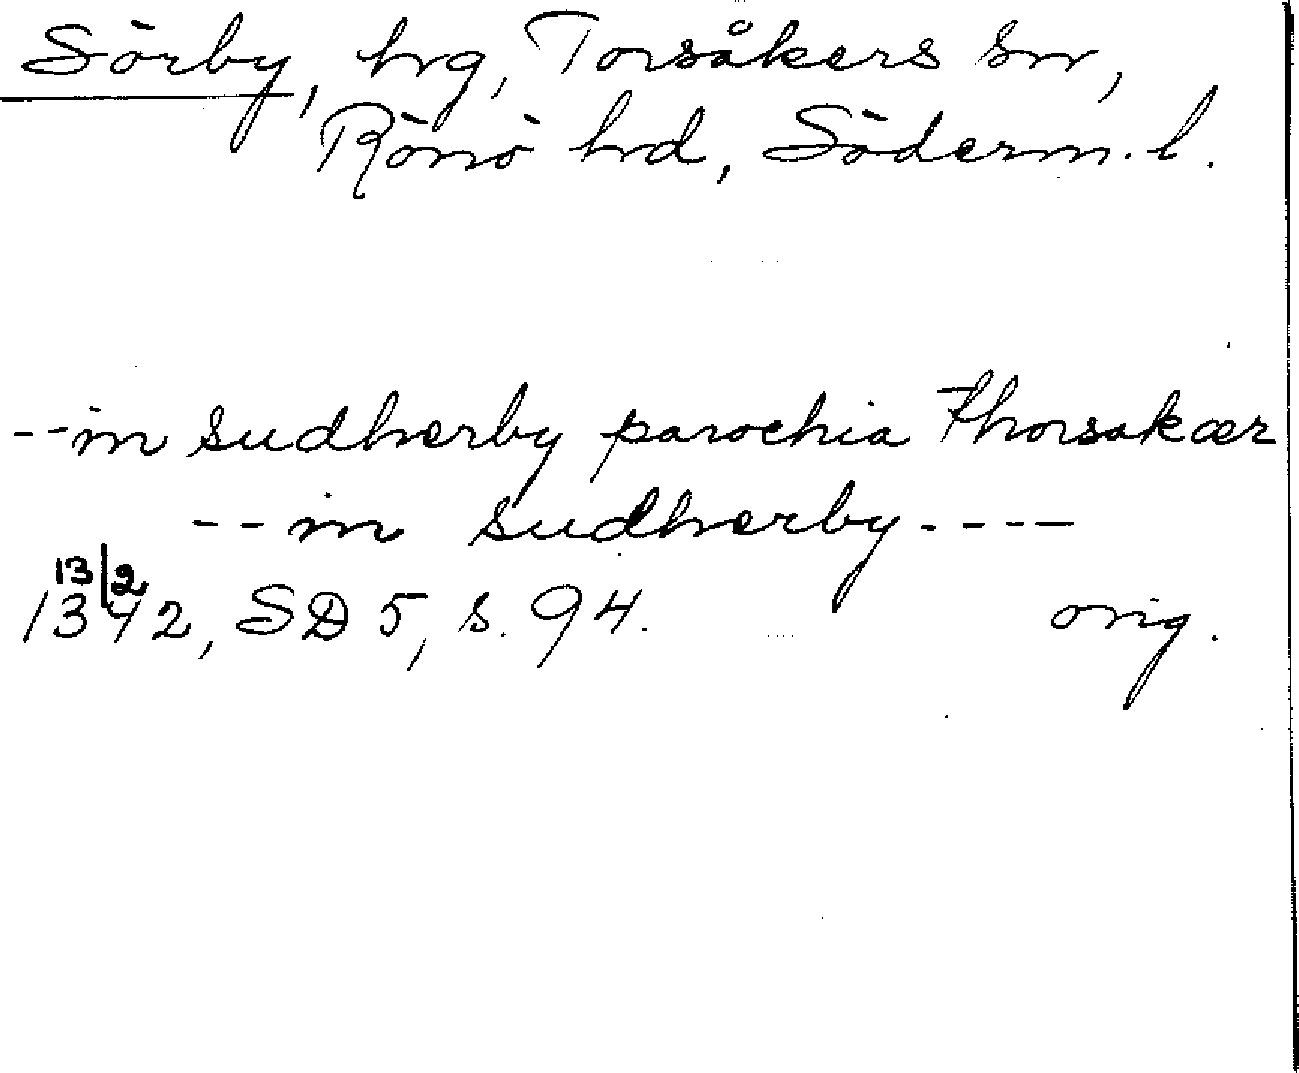 Sörby, hg, Torsåkers sn,
Rönö hd, Söderm. l.
--in sudherby parochia Thorsakær
--in sudherby----
13/2
1342, SD 5, s. 94. orig.